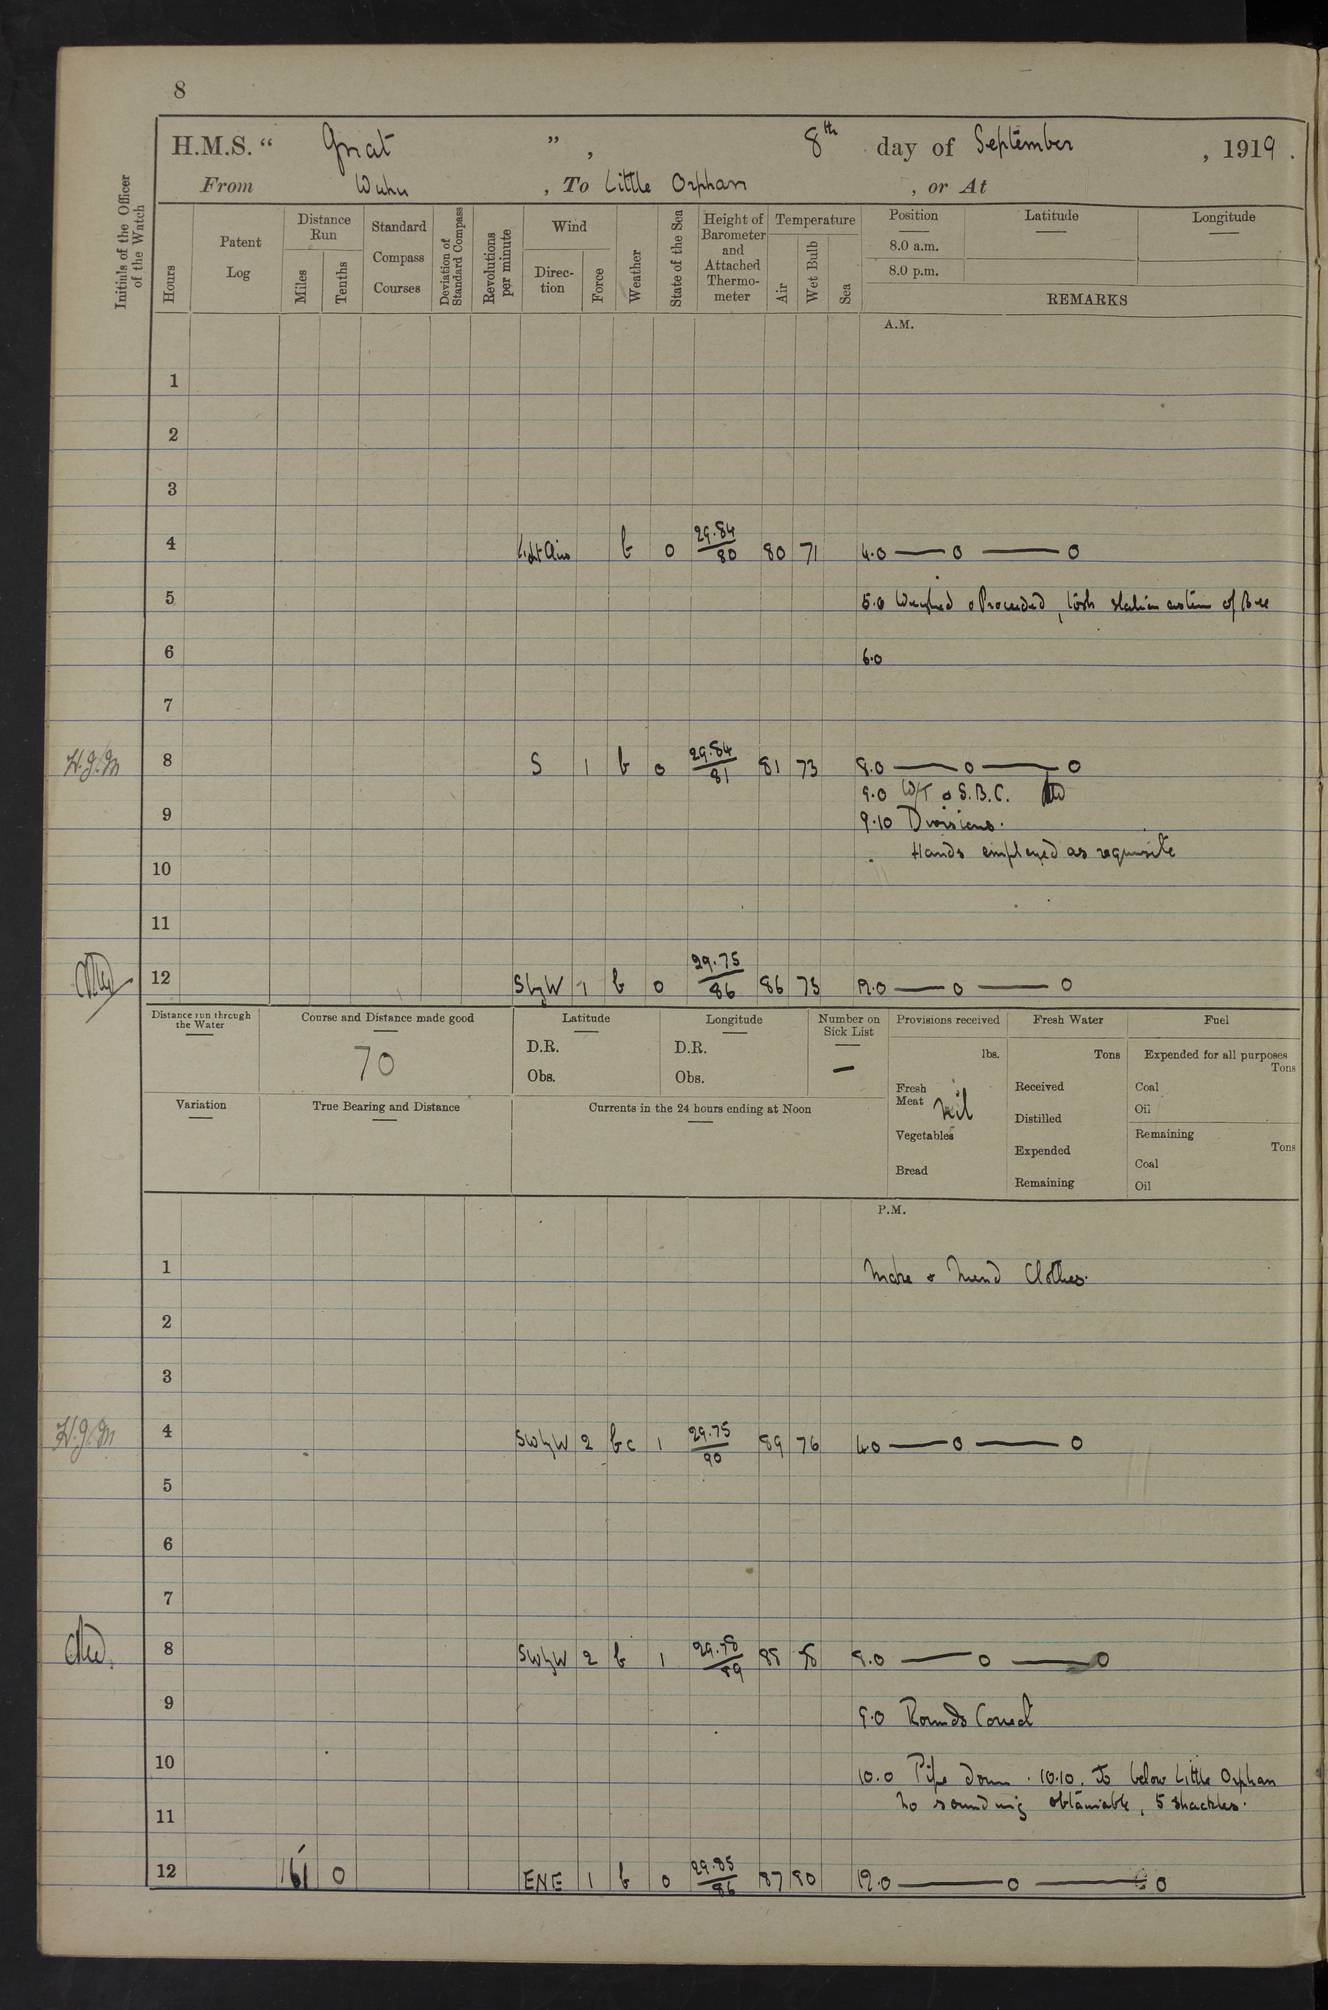 8
H.M.S. “ Gnat ” , 8th day of September , 1919 .
From Wuhu , To Little Orphan , or At
Initials of the Officer of the Watch
Hours
Patent Log
Distance Run
Miles
Tenths
Standard Compass Courses
Deviation of Standard Compass
Revolutions per minute
Wind
Direction
Force
Weather
State of the Sea
Height of Barometer and Attached Thermometer
Temperature
Air
Wet Bulb
Sea
Position Latitude Longitude
8.0 a.m.
8.0 p.m.
REMARKS
A.M.
1
2
3
4 Lt Airs b 0 29.84/80 80 71 4.0 — 0 — 0
5 5.0 Weighed & Proceeded, took station astern of Bee
6 6.0
7
H.J.M 8 S 1 b 0 29.84/81 81 73 8.0 — 0 — 0
9.0 W/T & S.B.C.
9 9.10 Divisions.
Hands employed as requisite
10
11
12 SbyW 1 b 0 29.75/86 86 75 12.0 — 0 — 0
Distance run through the Water
Course and Distance made good
70
Latitude
D.R.
Obs.
Longitude
D.R.
Obs.
Number on Sick List
—
Provisions received
lbs.
Fresh Meat nil
Vegetables
Bread
Fresh Water
Tons
Received
Distilled
Expended
Remaining
Fuel
Expended for all purposes
Tons
Coal
Oil
Remaining
Tons
Coal
Oil
Variation
True Bearing and Distance
Currents in the 24 hours ending at Noon
P.M.
1 Make & Mend Clothes.
2
3
H.J.M 4 SWbyW 2 bc 1 29.75/90 89 76 4.0 — 0 — 0
5
6
7
8 SWbyW 2 b 1 29.78/89 88 78 8.0 — 0 — 0
9 9.0 Rounds Correct
10 10.0 Pipe down. 10.10. To below Little Orphan
no sounding obtainable, 5 shackles.
11
12 161 0 ENE 1 b 0 29.85/86 87 80 12.0 — 0 — 0